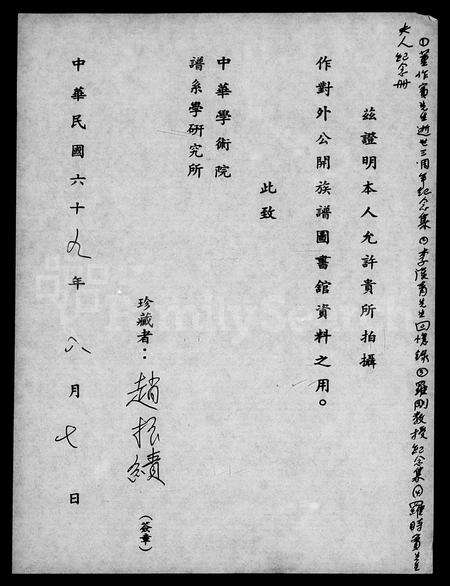 ①董作賓先生逝世三周年紀念集②李漢青先生回憶錄③羅剛教授紀念集④羅時實
大人紀念册
茲證明本人允許貴所拍攝
作對外公開族譜圖書館資料之用。
此致
中華學術院
譜系學研究所
珍藏者：趙振績（簽章）
中華民國六十九年八月七日